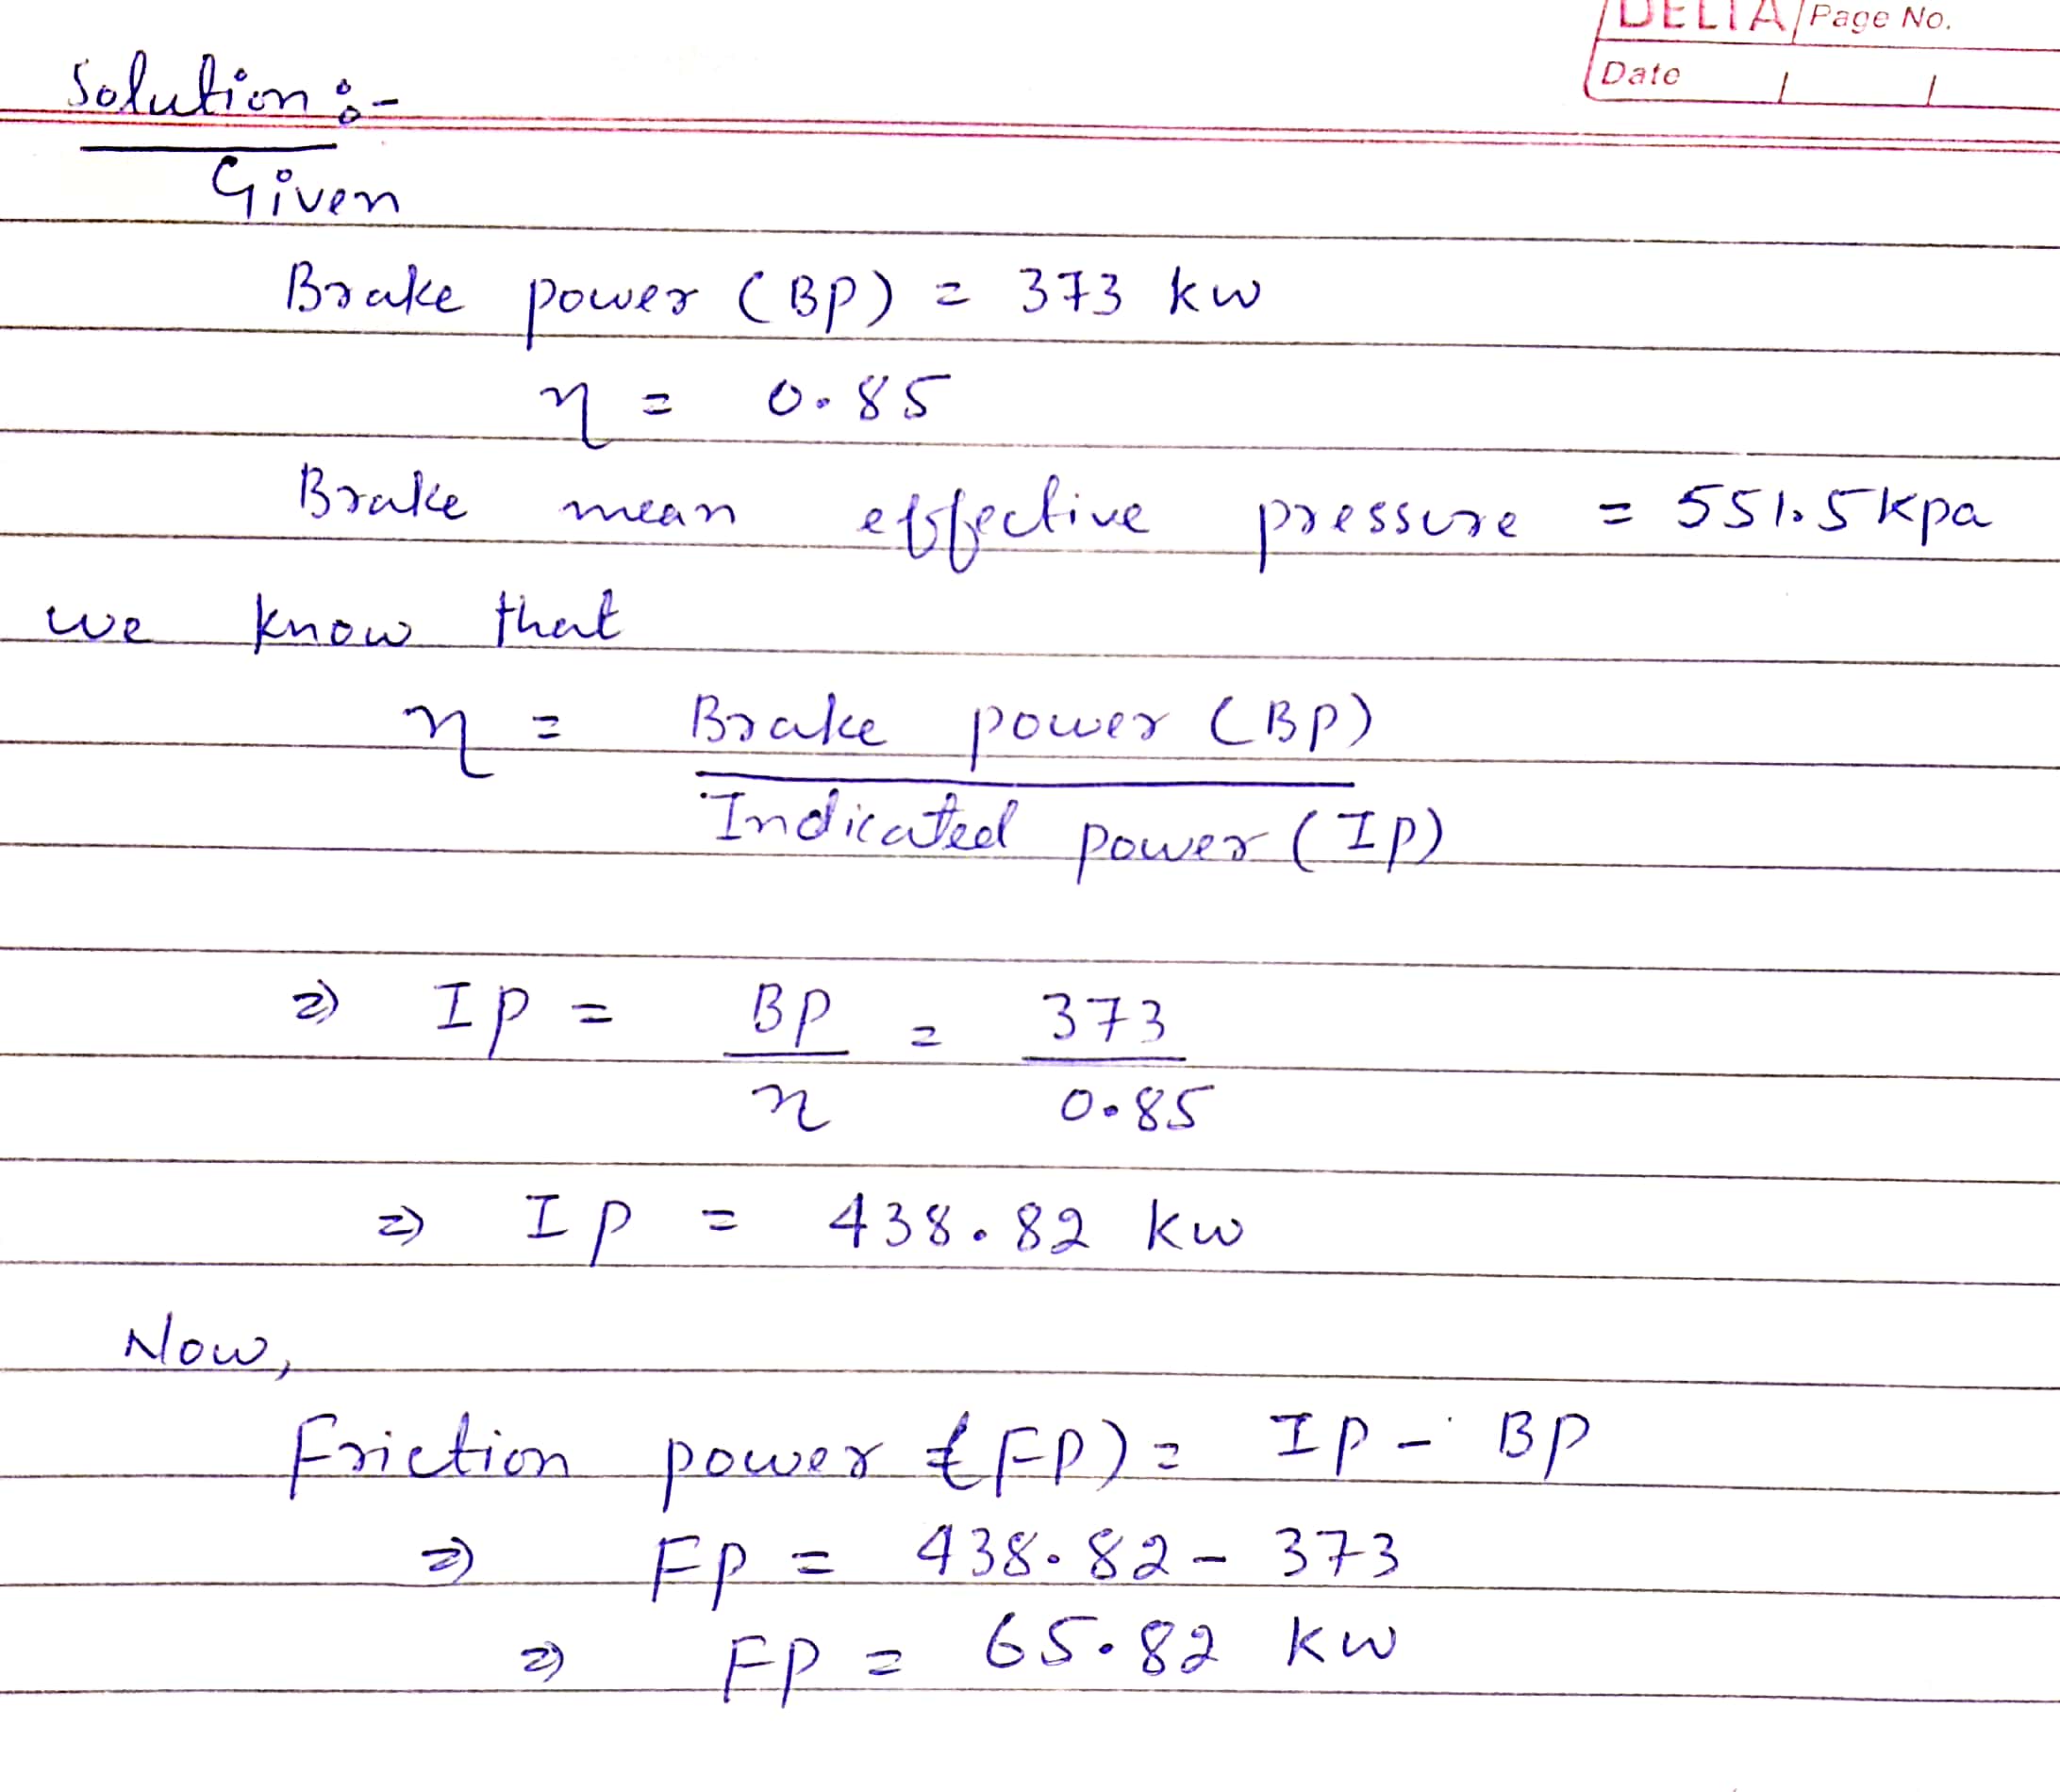 DELTA Page No.
Date / /
Solution :-
Given
Brake power (BP) = 373 kw
η = 0.85
Brake mean effective pressure = 551.5 kpa
we know that
η = Brake power (BP)
Indicated power (IP)
⇒ IP = BP = 373
η 0.85
⇒ IP = 438.82 kw
Now,
Friction power (FP) = IP - BP
⇒ FP = 438.82 - 373
⇒ FP = 65.82 kw